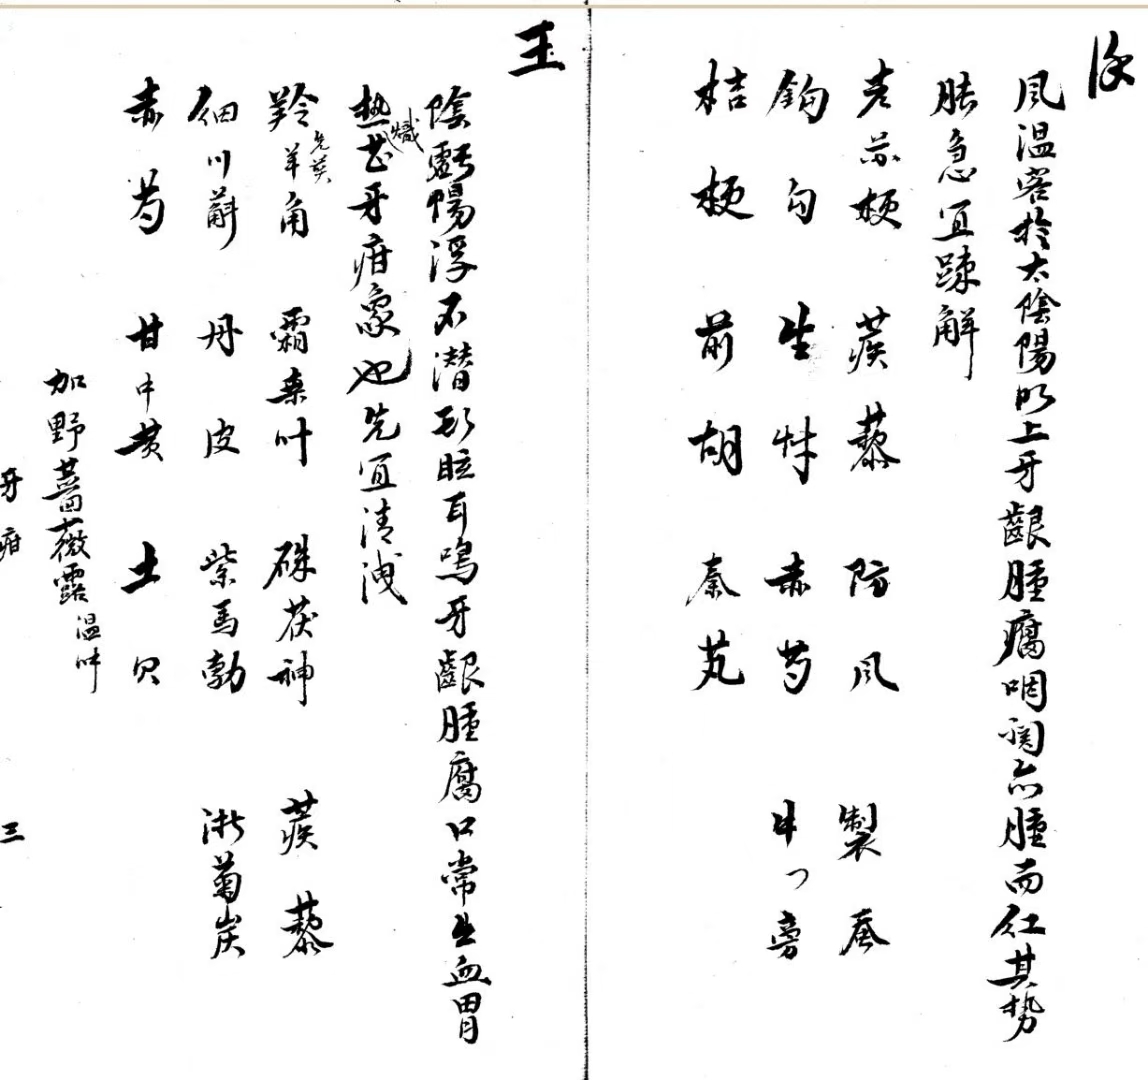 徐
風温客於太陰陽明上牙齦腫腐咽関亦腫而紅其勢
脹急宜疎解
老苏梗 蒺藜 防風 製蚕
鈎勾 生 赤芍 牛旁
桔梗 前胡 秦艽
王
陰虧陽浮不潜頭眩耳鳴牙齦腫腐口常出血胃
熱熾甚牙疳象也先宜清洩
羚羊角先煎 霜桑叶 硃茯神 蒺藜
細川斛 丹皮 紫馬勃 浙菊炭
赤芍 甘中黄 土贝
加野薔薇露温冲
牙疳 三